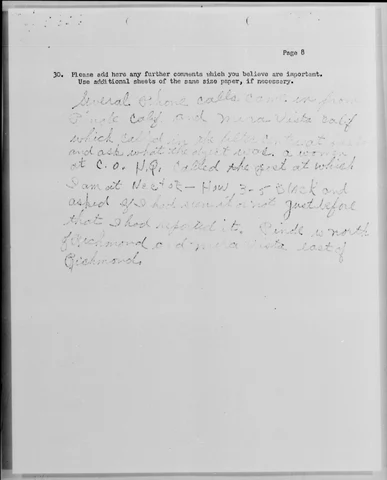 Page 8
30. Please add here any further comments which you believe are important.
Use additional sheets of the same size paper, if necessary.
Several phone calls came in from
Pinole Calif and Mira Vista Calif
which called in the
and ask what the object was. a woman
at C.O. H.Q. called the post at which
I am at Nectar - How 3-5 Black and
asked if I had seen it or not just before
that I had reported it. Pinole is north
of Richmond and mira vista east of
Richmond.